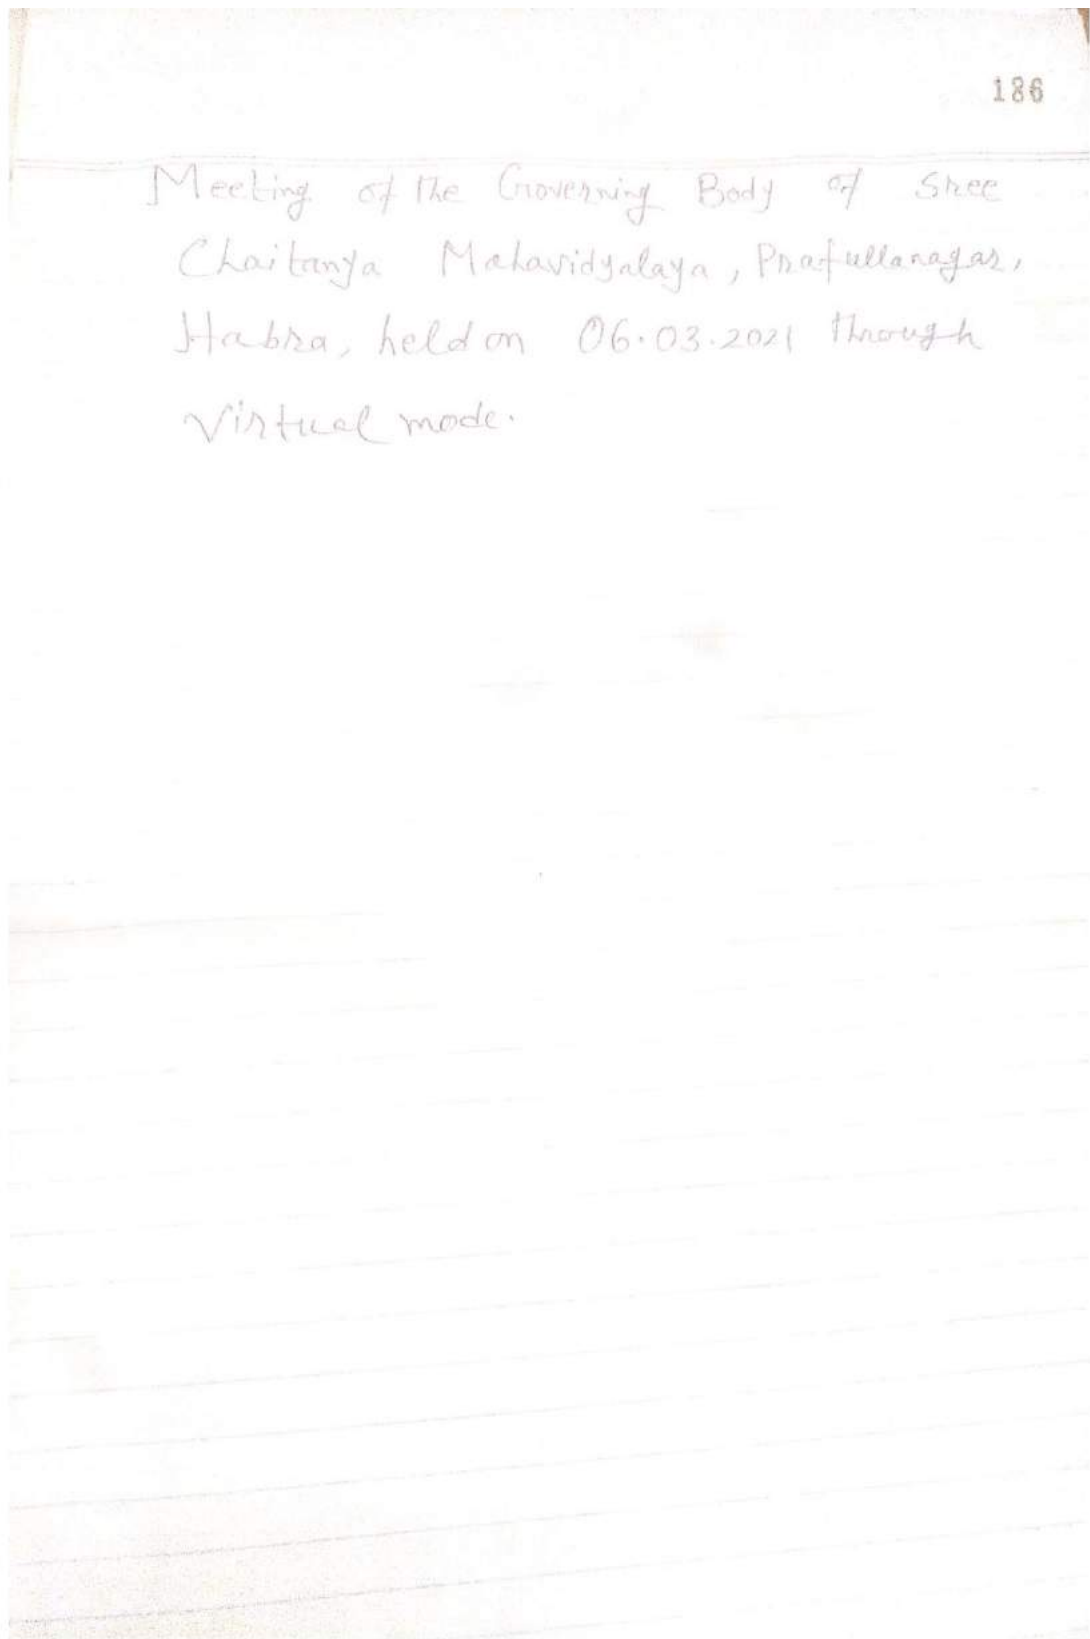 186
Meeting of the Governing Body of Sree
Chaitanya Mahavidyalaya, Prafullanagar,
Habra, held on 06.03.2021 through
Virtual mode.